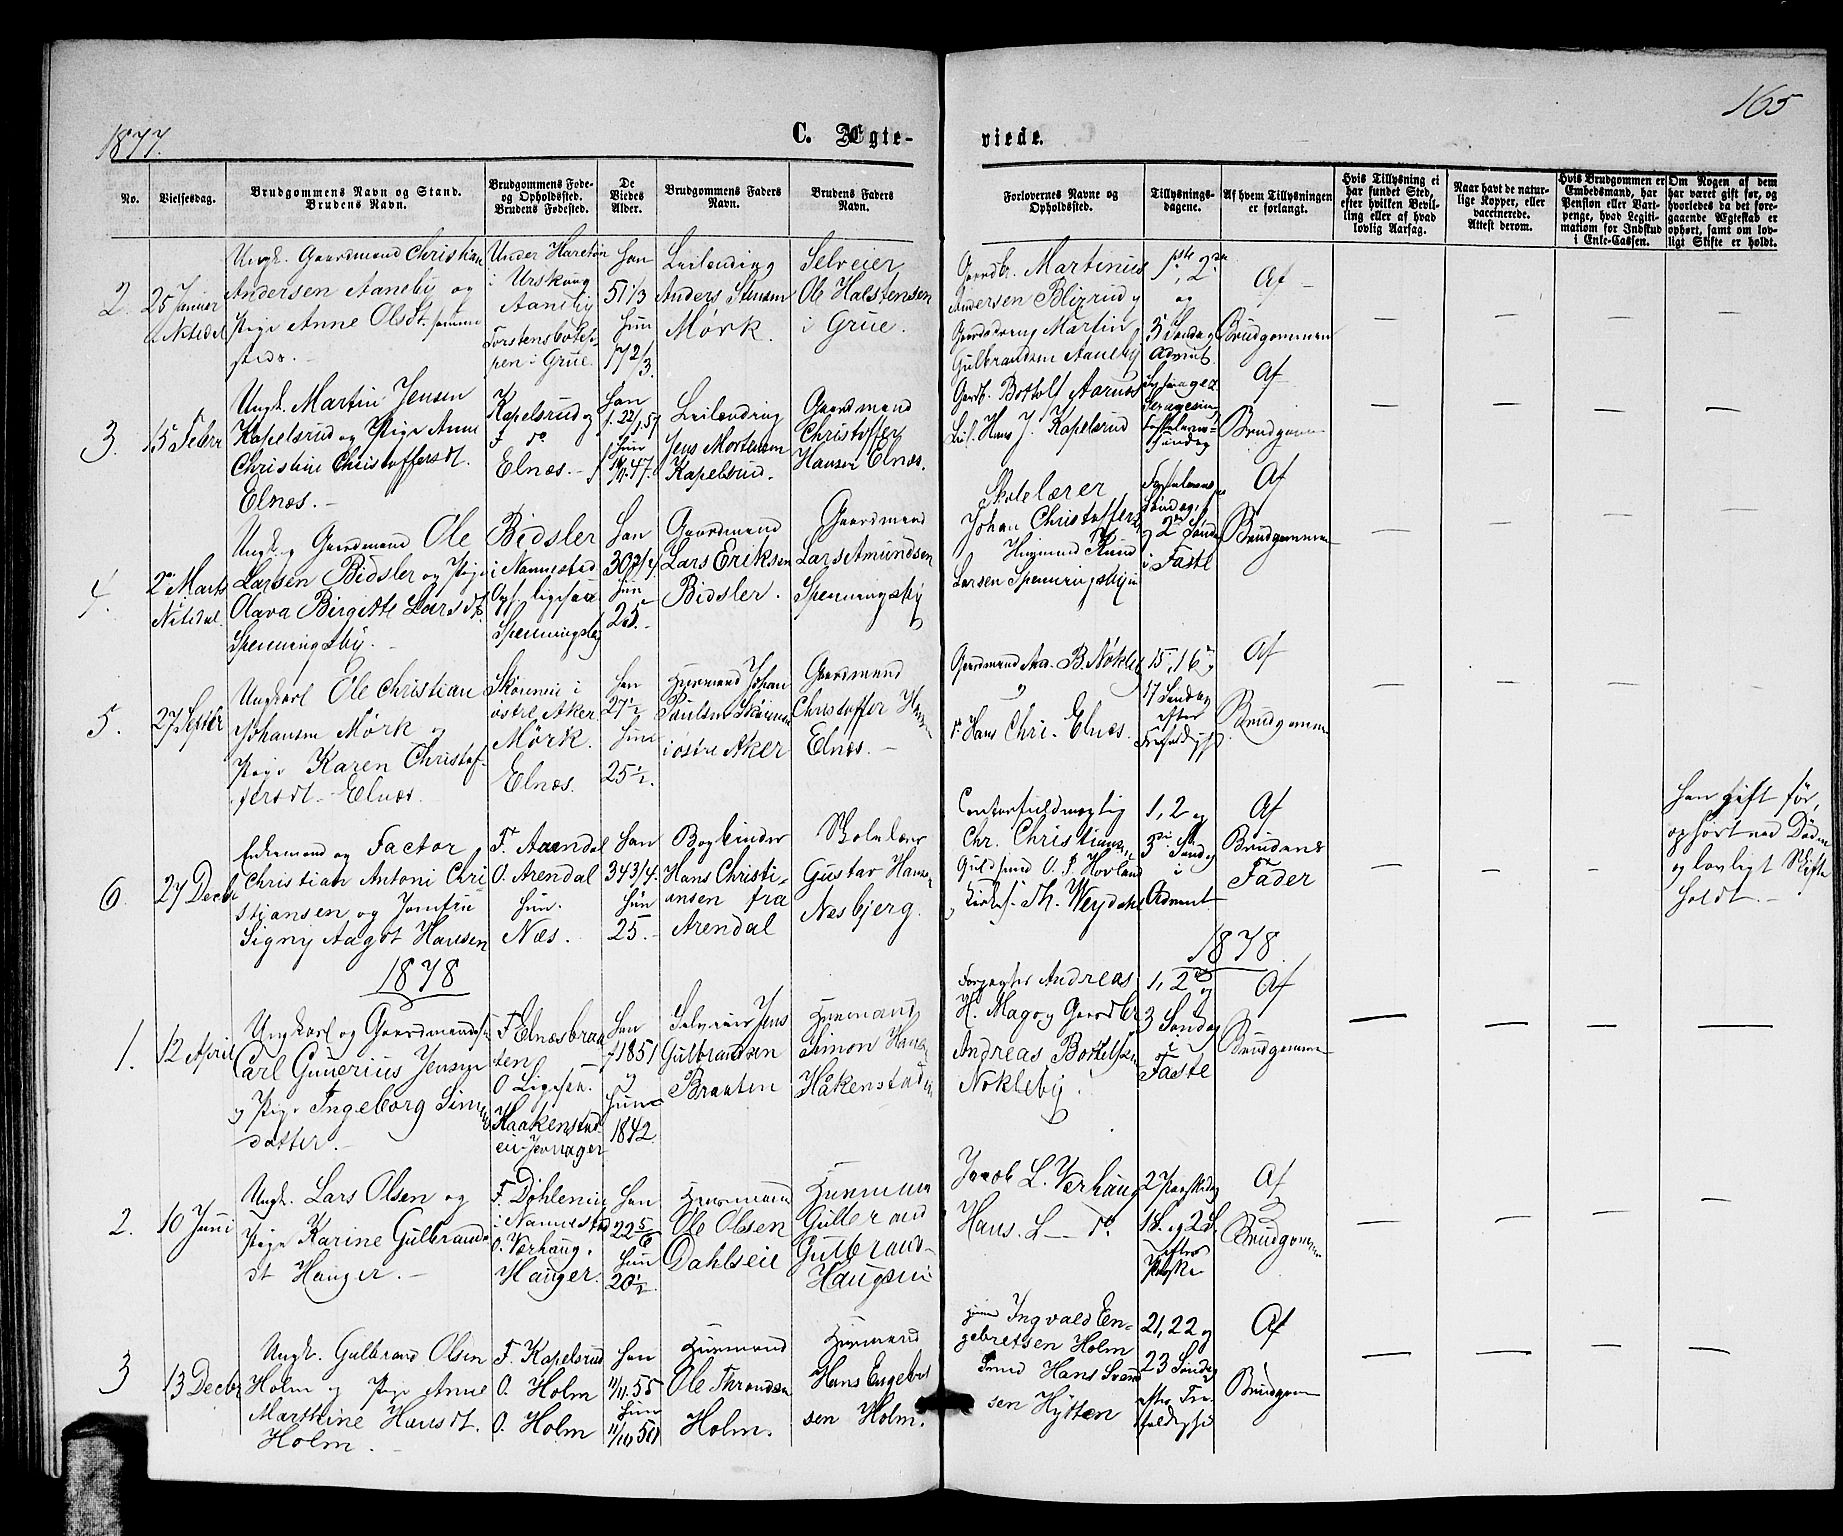 1877.
C. Ægte-
viede.
165
No.
Vielsesdag.
Brudgommens Navn og Stand.
Brudens Navn.
Brudgommens Føde-
og Opholdssted.
Brudens Fødested.
De
Viedes
Alder.
Brudgommens Faders
Navn.
Brudens Faders
Navn.
Forlovernes Navne og
Opholdssted.
Tillysnings-
dagene.
Af hvem Tillysningen
er forlangt.
Hvis Tillysning ei
har fundet Sted,
efter hvilken Bevil-
ling eller af hvad
lovlig Aarsag.
Naar havt de natur-
lige Kopper, eller
vaccinerede.
Attest derom.
Hvis Brudgommen er
Embedsmand, har
Pension eller Vart-
penge, hvad Legiti-
mation for Indskud
i Enke-Cassen.
Om Nogen af dem
har været gift før, og
hvorledes da det fore-
gaaende Ægteskab er
ophørt, samt om lov-
ligt Skifte er holdt.
2.
25 Januar
Nitedal
Ungk. Gaardmand Christian
Andersen Aaneby og
Pige Anne Olsdt.
i Urskoug
Aaneby
i Grue.
Han
51 1/3
Hun
17 2/3.
Leilending
Anders
Mørk.
Selveier
Ole Halstensen
i Grue.
Gaardbr. Martinus
Andersen
Martin
Gulbrandsen Aaneby
og
3 Søndag
Advent.
Af
Brudgommen
3.
15 Febr
Ungk. Martin Jensen
Kapelsrud og Pige Anne
Christine Christoffersdt.
Elnæs. -
Kapelsrud
do
Elnæs. -
Han
Hun
Leilending
Jens Mortensen
Kapelsrud.
Gaardmand
Christoffer
Hansen Elnæs.
Gaardb. Bottolf
Leil. Hans J. Kapelsrud
Søndag
Af
Brudgommen
4.
2 Marts
Nitedal.
Ungk. og Gaardmand Ole
Larsen Bidsler og Pige
Olava Birgitte Larsdt.
Spenningsby.
Bidsler
i Nannestad
Spenningsby
Han
30 3/4
Hun
25.
Gaardmand
Lars Eriksen
Bidsler.
Gaardmand
Lars Amundsen
Spenningsby
Skolelærer
Johan Christoffersen
Larsen Spenningsby
Søndag
2
i Faste
Af
Brudgommen
5.
27
Ungkarl Ole Christian
Johansen Mørk og
Pige Karen Christof-
fersdt. Elnæs.
i
østre Aker
Mørk.
Elnæs.
Han
27 1/2
Hun
25 1/2.
Huusmand Johan
Paulsen
i østre Aker
Gaardmand
Christoffer Hansen
Elnæs. -
Gaardmand B. Nøkleby
og
Hans Chr. Elnæs.
15, 16 og
17 Søndag
efter
Af
Brudgommen
6.
27 Decbr
Enkemand og Factor
Christian Antoni Chri-
stiansen og Jomfru
Signy Aagot Hansen
F. Arendal
O. Arendal
Hun.
Næs.
Han
34 3/4.
Hun
25.
Bogbinder
Hans Christi-
ansen fra
Arendal
Skolelærer
Gustav Hansen
Nesbjerg.
Chr. Christiansen
Guldsmed O. P. Hovland
Th. Weydahl
1, 2 og
3die Søndag
i
Advent
Af
Brudens
Fader
Han gift før,
ophørt ved Døden
og lovligt Skifte
holdt.
1878
1878.
1.
12 April
Ungkarl og Gaardmandssøn
Carl Gunerius Jensen
og Pige Ingeborg Simens-
datter. -
F. Elnæsbraa-
ten
O. Ligesaa.
Haakenstad-
eie
Han
1851
og
Hun
1842.
Selveier Jens
Gulbrandsen
Braaten
Huusmand
Simon Hansen
Håkenstad
Forpagter Andreas
H. Mago Gaardbr.
Andreas Bottolfsen
Nøkleby.
1, 2 og
3 Søndag
i
Faste
Af
Brudgommen
2.
10 Juni
Ungk. Lars Olsen og
Pige Karine Gulbrands-
dt Hauger. -
F. Døhleneie
i Nannestad
O. Værhaug.
Hauger.
Han
22 5/6
Hun
20 1/2
Huusmand
Ole Olsen
Dahlseie
Huusmand
Gulbrand
Gulbrand-
Jacob L. Værhaug
Hans L - do
2 Paaskedag
1S. og 2S.
efter
Paaske
Af
Brudgommen
3
13 Decbr
Ungk. Gulbrand Olsen
Holm og Pige Anne
Marthine Hansdt.
Holm. -
F. Kapelsrud
O. Holm
O. Holm
Han
11/11.55
Hun
Huusmand
Ole Throndsen
Holm.
Huusmand
Hans Engebret-
sen Holm.
Ingvald En-
gebretsen Holm
Smed Hans Svend-
sen Hytten
21, 22 og
23 Søndag
efter Tre-
foldighed
Af
Brudgommen